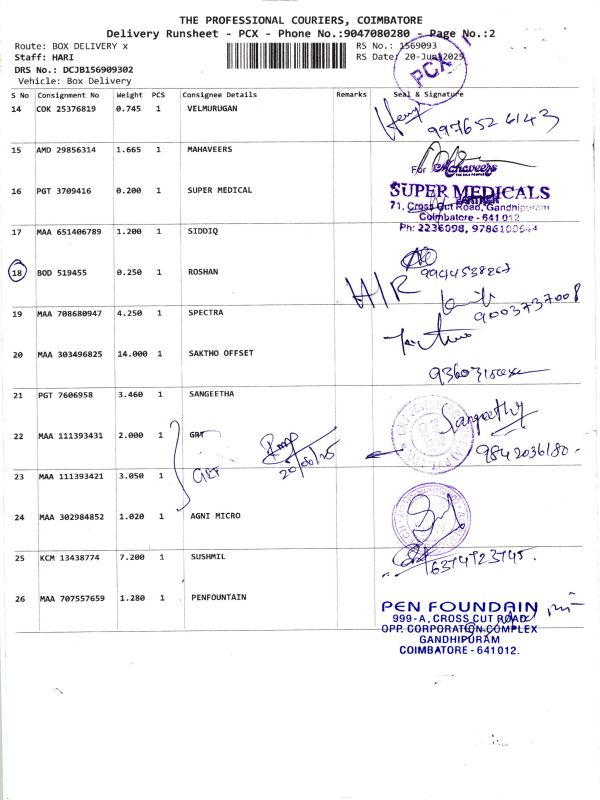 THE PROFESSIONAL COURIERS, COIMBATORE
Delivery Runsheet - PCX - Phone No.:9047080280 - Page No.:2
Route: BOX DELIVERY x
RS No.: 1569093
Staff: HARI
RS Date: 20-Jun-2025
DRS No.: DCJB156909302
Vehicle: Box Delivery
PCX
S No Consignment No Weight PCS Consignee Details Remarks Seal & Signature
14 COK 25376819 0.745 1 VELMURUGAN
9976526143
15 AMD 29856314 1.665 1 MAHAVEERS
For Mahaveers
16 PGT 3709416 0.200 1 SUPER MEDICAL
SUPER MEDICALS
71, Cross Cut Road, Gandhipuram
Coimbatore - 641 012
Ph: 2236098, 9786100544
17 MAA 651406789 1.200 1 SIDDIQ
18 BOD 519455 0.250 1 ROSHAN
H/R
9003737008
19 MAA 708680947 4.250 1 SPECTRA
20 MAA 303496825 14.000 1 SAKTHO OFFSET
21 PGT 7606958 3.460 1 SANGEETHA
Sangeetha
9842036180
22 MAA 111393431 2.000 1 GRT
20/06/25
23 MAA 111393421 3.050 1 GRT
24 MAA 302984852 1.020 1 AGNI MICRO
25 KCM 13438774 7.200 1 SUSHMIL
6374723745.
26 MAA 707557659 1.280 1 PENFOUNTAIN
PEN FOUNDAIN
999-A, CROSS CUT ROAD
OPP. CORPORATION COMPLEX
GANDHIPURAM
COIMBATORE - 641012.